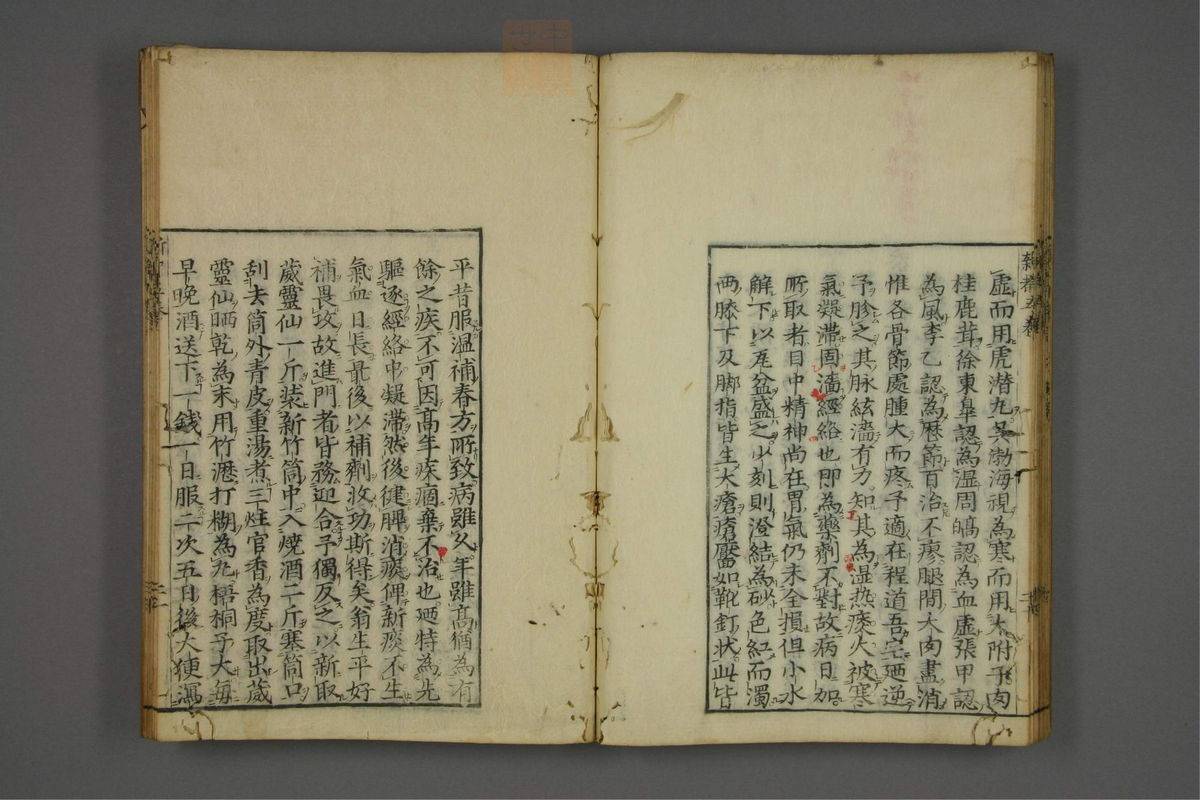 虛而用虎潜丸吳渤海視為寒而用大附子肉
桂鹿茸徐東皐認為溫周皜認為血虛張甲認
為風李乙認為歷節百治不瘳腿間大肉盡消
惟各骨節處腫大而疼予適在程道吾宅廼逆
予胗之其脉絃濇有力知其為湿热痰火被寒
氣凝滯固濇經絡也即為藥劑不對故病日加
所取者目中精神尚在胃氣仍未全損但小水
解下以瓦盆盛之少刻則澄結為砂色紅而濁
两膝下及脚指皆生大瘡瘡靨如靴釘狀此皆
平昔服溫補春方所致病雖久年雖高猶為有
餘之疾不可因高年疾痼棄不治也廼特為先
驅逐經絡中凝滯然後健脾消痰俾新痰不生
氣血日長最後以補劑收功斯得矣翁生平好
補畏攻故進門者皆務迎合予獨反之以新取
葳靈仙一斤装新竹筒中入焼酒二斤塞筒口
刮去筒外青皮重湯煮三炷官香為度取出葳
靈仙晒乾為末用竹瀝打糊為丸梧桐子大每
早晚酒送下一錢一日服二次五日後大便瀉